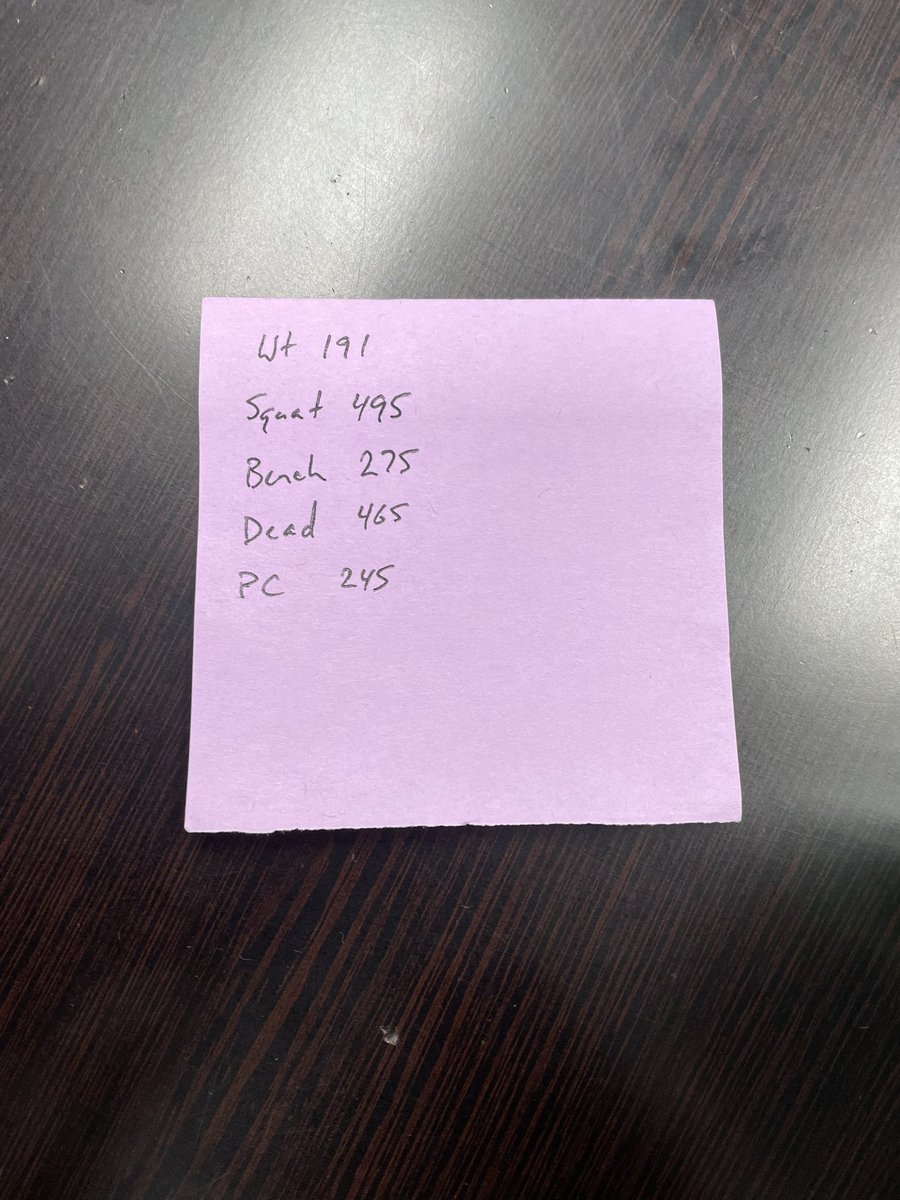 Wt 191
Squat 495
Bench 275
Dead 465
PC 245